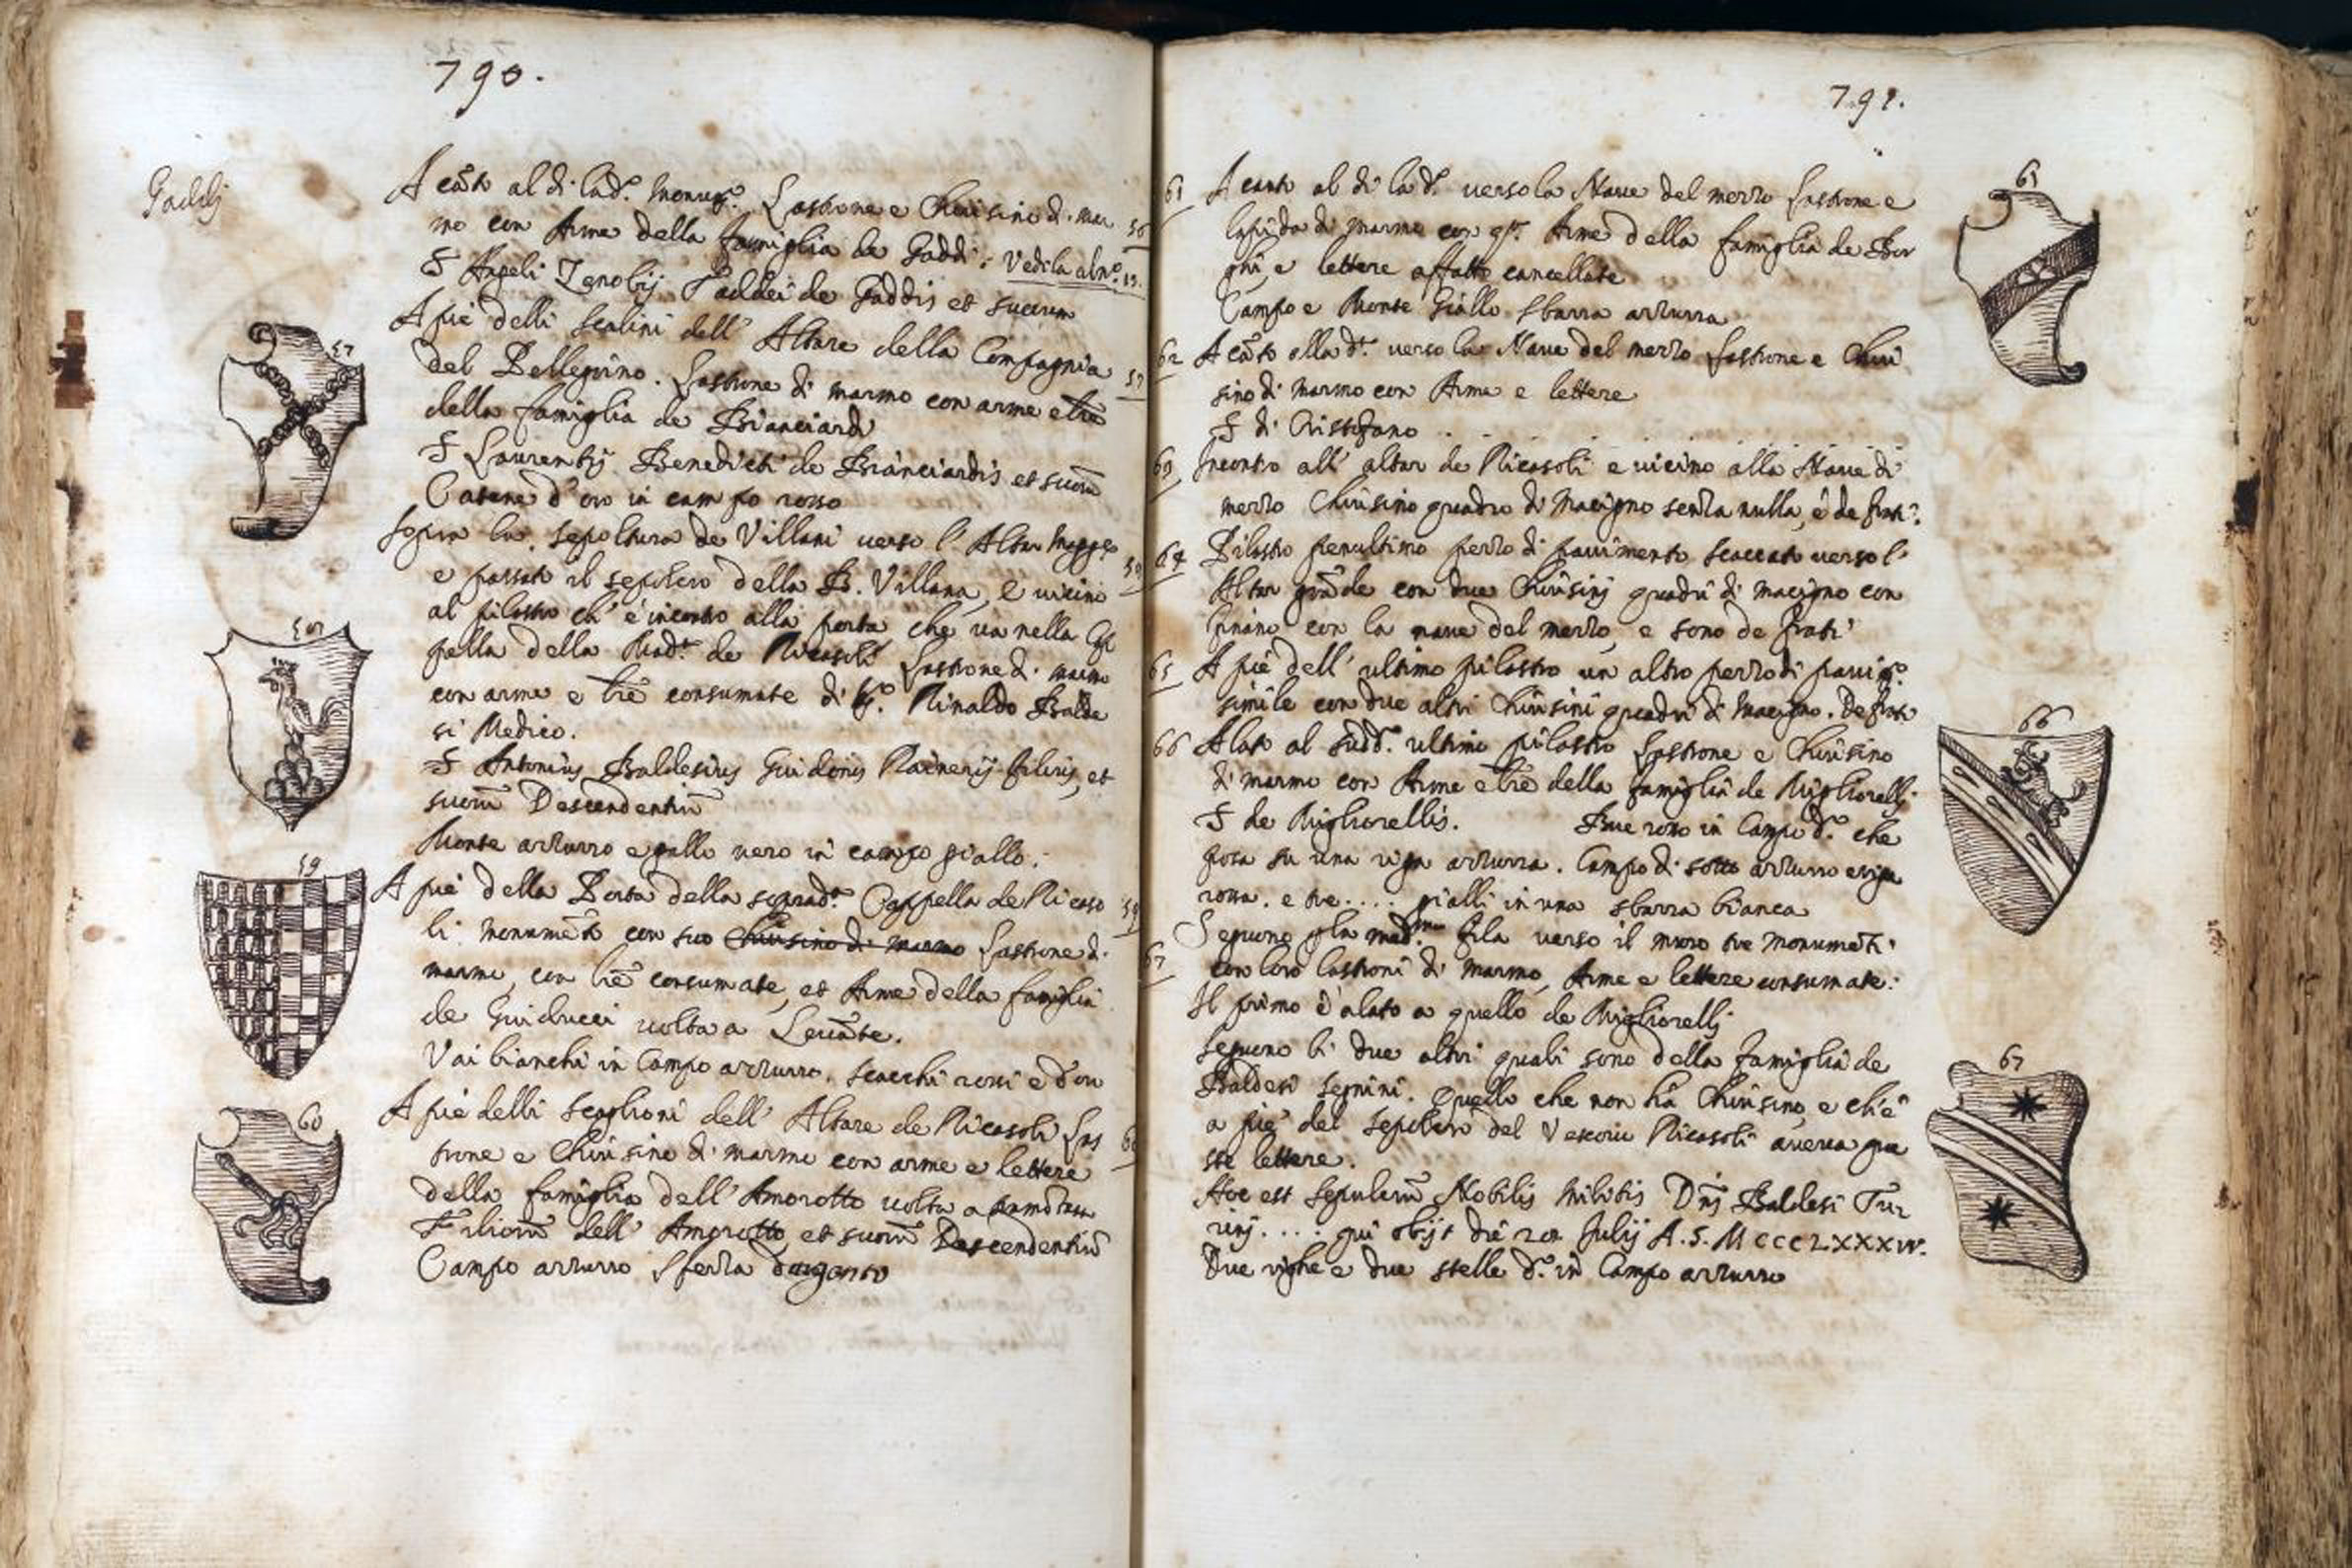 790.
Gaddi
A cāto al di lad.º monum.º Lastrone e Chiusino di mar 56
mo con Arme della famiglia de Gaddi. Vedila al nº. 13.
S Angeli Zenobij Taddei de Gaddis et suorum
A piè delli scalini dell' Altare della Compagnia
del Pellegrino. Lastrone di marmo con arme e lrē 57
della famiglia de Bianciardi
S Laurentij Benedicti de Branciardis et suorū
Catene d'oro in campo rosso
57
Sopra la sepoltura de Villani verso l' Altar Magg.e
e passato il sepolcro della B. Villana, e vicino 58
al pilastro ch' è incontro alla porta che va nella Ca
pella della Mad.ª de Ricasoli Lastrone di marmo
con arme e lrē consumate di Rinaldo Balde
si Medico.
S Antonius Baldesius Guidonis Rainerij filius, et
suorū Descendentiū
Monte azzurro e gallo nero in campo giallo.
58
A piè della Porta della soprad.ª Cappella de Ricaso 59
li monumēto con suo Chiusino di marmo Lastrone di
marmo, con lrē consumate, et Arme della famiglia
de Guiducci volta a Levāte.
Vai bianchi in Campo azzurro. scacchi rossi e d'oro
59
A piè delli scaglioni dell' Altare de Ricasoli Las 60
trone e Chiusino di marmo con arme e lettere
della famiglia dell' Amorotto volta a
Filiorū dell' Amorotto et suorū Descendentiū
Campo azzurro Sferza d'argento
60
791.
61 A canto al di lad.º verso la Nave del mezzo Lastrone e
lapida di marmo con q.ª Arme della famiglia de Bor
ghi, e lettere affatto cancellate
Campo e Monte Giallo Sbarra azzurra
61
62 A cāto alla d.ª verso la Nave del mezzo Lastrone e Chiu
sino di marmo con Arme e lettere
S di Cristofano . . .
63 Incontro all' altar de Ricasoli e vicino alla Nave di
mezzo Chiusino quadro di Macigno senza nulla, è de frati.
64 Pilastro penultimo pezzo di pavimento staccato verso l'
Altar grāde con due Chiusini quadri di macigno con
finano con la nave del mezzo, e sono de frati
65 A piè dell' ultimo pilastro un altro pezzo di pavim.º
simile con due altri Chiusini quadri di Macigno. De frati
66 A lato al sudd.º ultimo pilastro Lastrone e Chiusino
di marmo con Arme e lrē della famiglia de Migliorelli
S de Migliorellis. Bue rosso in Campo d.º che
posa su una riga azzurra. Campo di sotto azzurro e riga
rossa. e tre .... gialli in una sbarra bianca
66
67 Seguono p la med.ma fila verso il muro tre monumēti
con loro lastroni di marmo, Arme e lettere consumate:
Il primo è alato a quello de Migliorelli
seguono li due altri quali sono della famiglia de
Baldesi Segnini. Quello che non hà Chiusino, e ch'è
a piè del sepolcro del Vescovo Ricasoli aveva que
ste lettere.
Hoc est sepulcrū Nobilis Militis Dn̄i Baldesi Tur
rinj .... qui obijt die 20. Julij A.S. MCCCLXXXIV.
Due righe e due stelle d.º in Campo azzurro
67